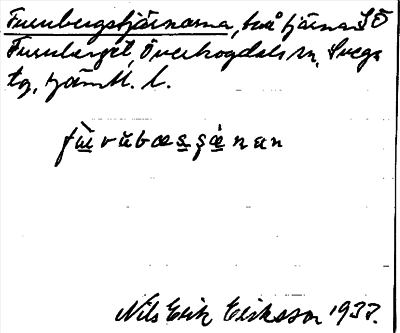 Furubergstjärnarna, två tjärnar SÖ
Furuberget, Överhogdals sn, Svegs
tg, Jämtl. l.
fùrubæsşænan
Nils Erik Eriksson 1937.